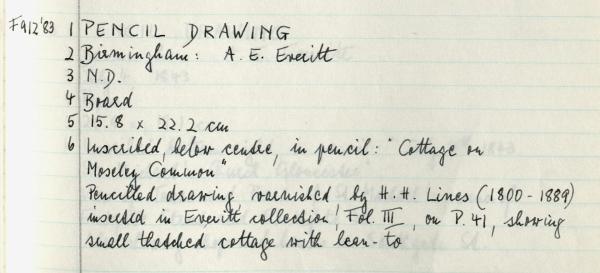 F912'83 1 PENCIL DRAWING
2 Birmingham: A. E. Everitt
3 N.D.
4 Board
5 15.8 x 22.2 cm
6 Inscribed, below centre, in pencil: "Cottage on
Moseley Common"
Pencilled drawing, varnished by H.H. Lines (1800-1889)
inserted in Everitt collection, Fol. III, on P. 41, showing
small thatched cottage with lean-to